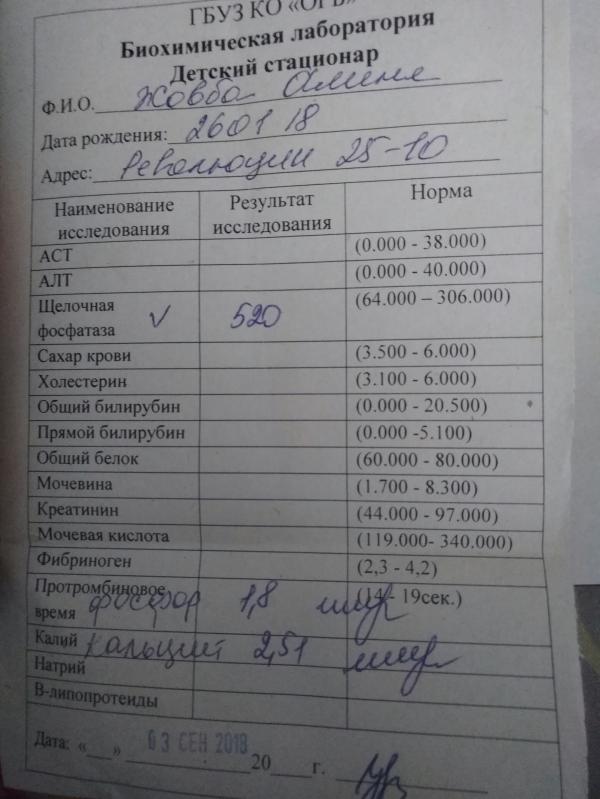 ГБУЗ КО «ОГБ»
Биохимическая лаборатория
Детский стационар
Ф.И.О. Жовба Алине
Дата рождения: 260118
Адрес: Революции 25-10
Наименование исследования Результат исследования Норма
АСТ (0.000 - 38.000)
АЛТ (0.000 - 40.000)
Щелочная фосфатаза V 520 (64.000 – 306.000)
Сахар крови (3.500 - 6.000)
Холестерин (3.100 - 6.000)
Общий билирубин (0.000 - 20.500)
Прямой билирубин (0.000 -5.100)
Общий белок (60.000 - 80.000)
Мочевина (1.700 - 8.300)
Креатинин (44.000 - 97.000)
Мочевая кислота (119.000- 340.000)
Фибриноген (2,3 - 4,2)
Протромбиновое время (14 - 19сек.)
фосфор 1,8
Калий
кальций 2,51
Натрий
В-липопротеиды
Дата: «___» 03 СЕН 2018 20____ г.